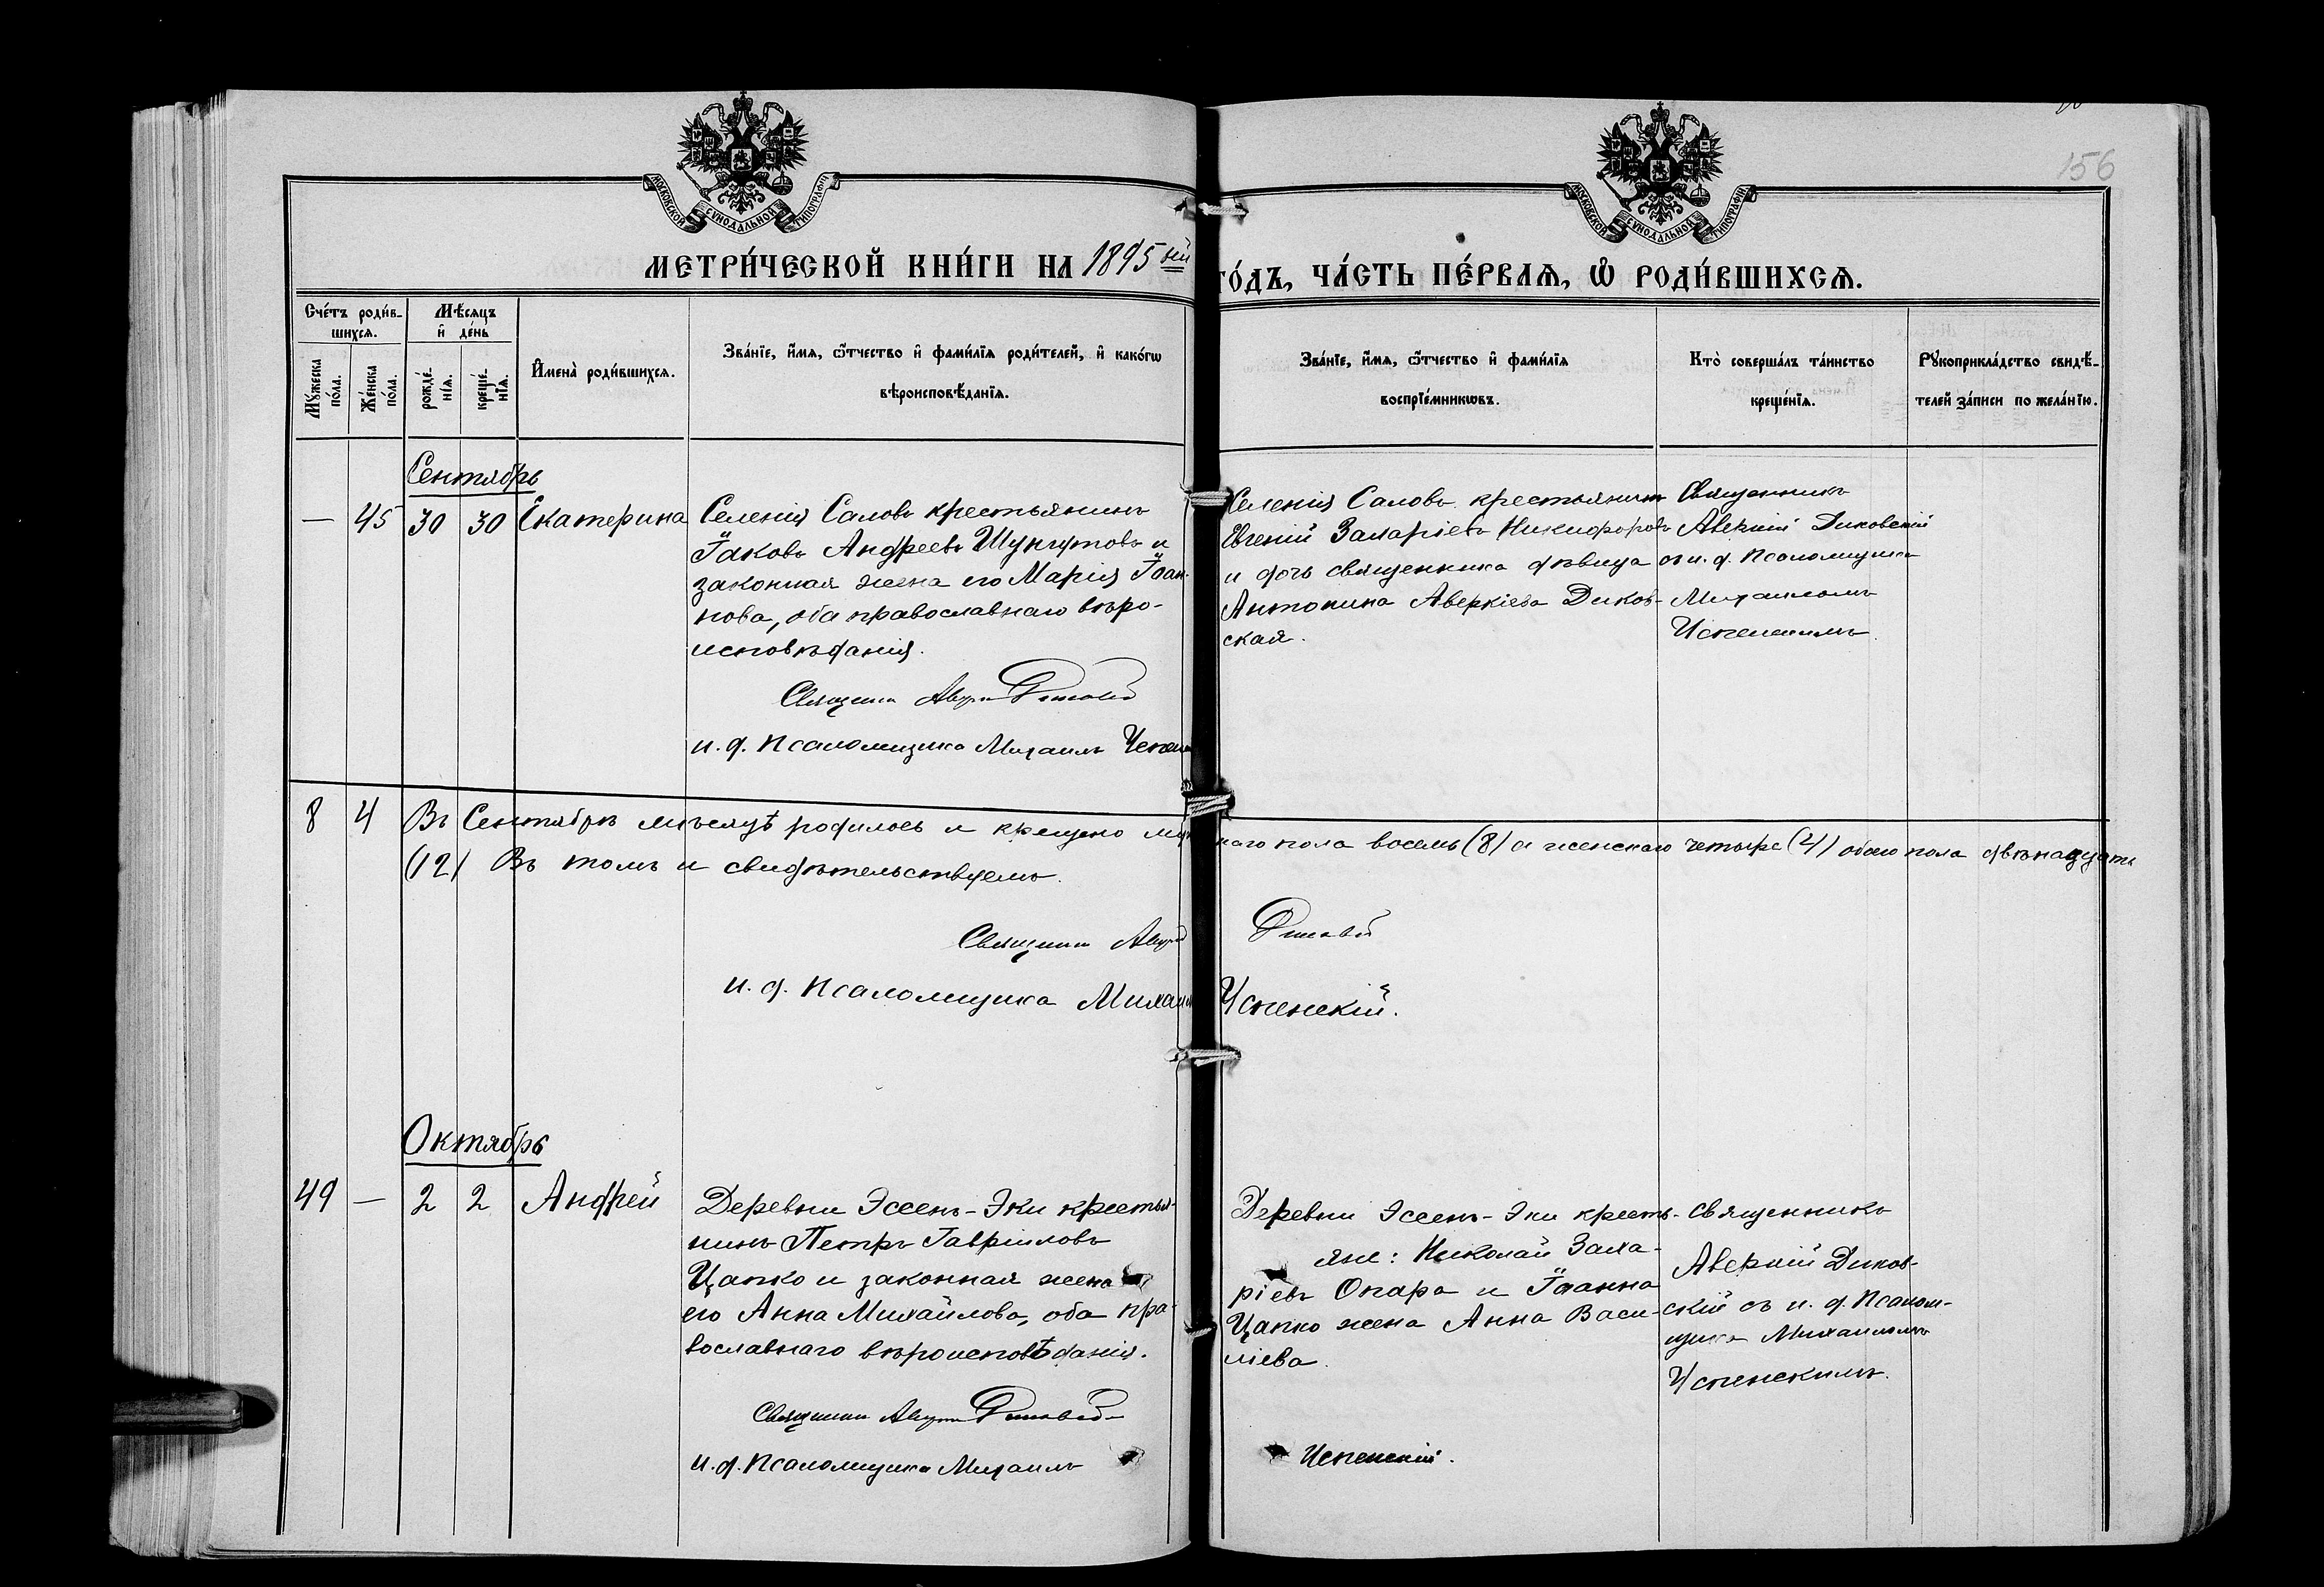 МОСКОВСКОЙ СУНОДАЛЬНОЙ ТИПОГРАФІИ
МОСКОВСКОЙ СУНОДАЛЬНОЙ ТИПОГРАФІИ
156
МЕТРИ́ЧЕСКОЙ КНИ́ГИ НА 1895 ый
ГО́ДЪ, ЧА́СТЬ ПЕ́РВАѦ, Ѡ҆ РОДИ́ВШИХСѦ.
Сче́тъ роди́в-
шихсѧ.
Мꙋ́жеска
по́ла.
Же́нска
по́ла.
Мѣ́сѧцъ
и҆ де́нь
рожде́-
нїѧ.
креще́-
нїѧ.
И҆мена̀ роди́вшихсѧ.
Зва́нїе, и҆́мѧ, ѻ҆́тчество и҆ фами́лїѧ роди́телей, и҆ како́гѡ
вѣроисповѣ́данїѧ.
Зва́нїе, и҆́мѧ, ѻ҆́тчество и҆ фами́лїѧ
воспрїе́мникѡвъ.
Кто̀ соверша́лъ та́инство
креще́нїѧ.
Рꙋкоприкла́дство свидѣ́-
телей за́писи по жела́нїю.
Сентябрь
— 45 30 30 Екатерина
Селенія Саловъ крестьянинъ
Іаковъ Андреевъ и
законная жена его Марія Іоан-
нова, оба православнаго вѣро-
исповѣданія.
Священникъ Аверкій Диковскій
и. д. Псаломщика Михаилъ Успен
Селенія Саловъ крестьянинъ
Евгеній Захаріевъ Никифоровъ
и дочь священника дѣвица
Антонина Аверкіева Диков-
ская.
Священникъ
Аверкій Диковскій
съ и. д. Псаломщика
Михаиломъ
Успенскимъ.
8 4 Въ Сентябрѣ мѣсяцѣ родилось и крещено муж
скаго пола восемь (8) а женскаго четыре (4) обоего пола двѣнадцать
(12) Въ томъ и свидѣтельствуемъ.
Священникъ Аверкій Диковскій
и. д. Псаломщика Михаилъ Успенскій.
Октябрь
49 — 2 2 Андрей
Деревни Эсень-Эки крестья-
нинъ Петръ Гавріиловъ
Цапко и законная жена
его Анна Михайлова, оба пра-
вославнаго вѣроисповѣданія.
Священникъ Аверкій Диковскій
и. д. Псаломщика Михаилъ
Успенскій.
Деревни Эсень-Эки кресть-
яне: Николай Заха-
ріевъ Опара и Іоанна
Цапко жена Анна Васи-
ліева.
Священникъ
Аверкій Диков-
скій съ и. д. Псалом-
щика Михаиломъ
Успенскимъ.